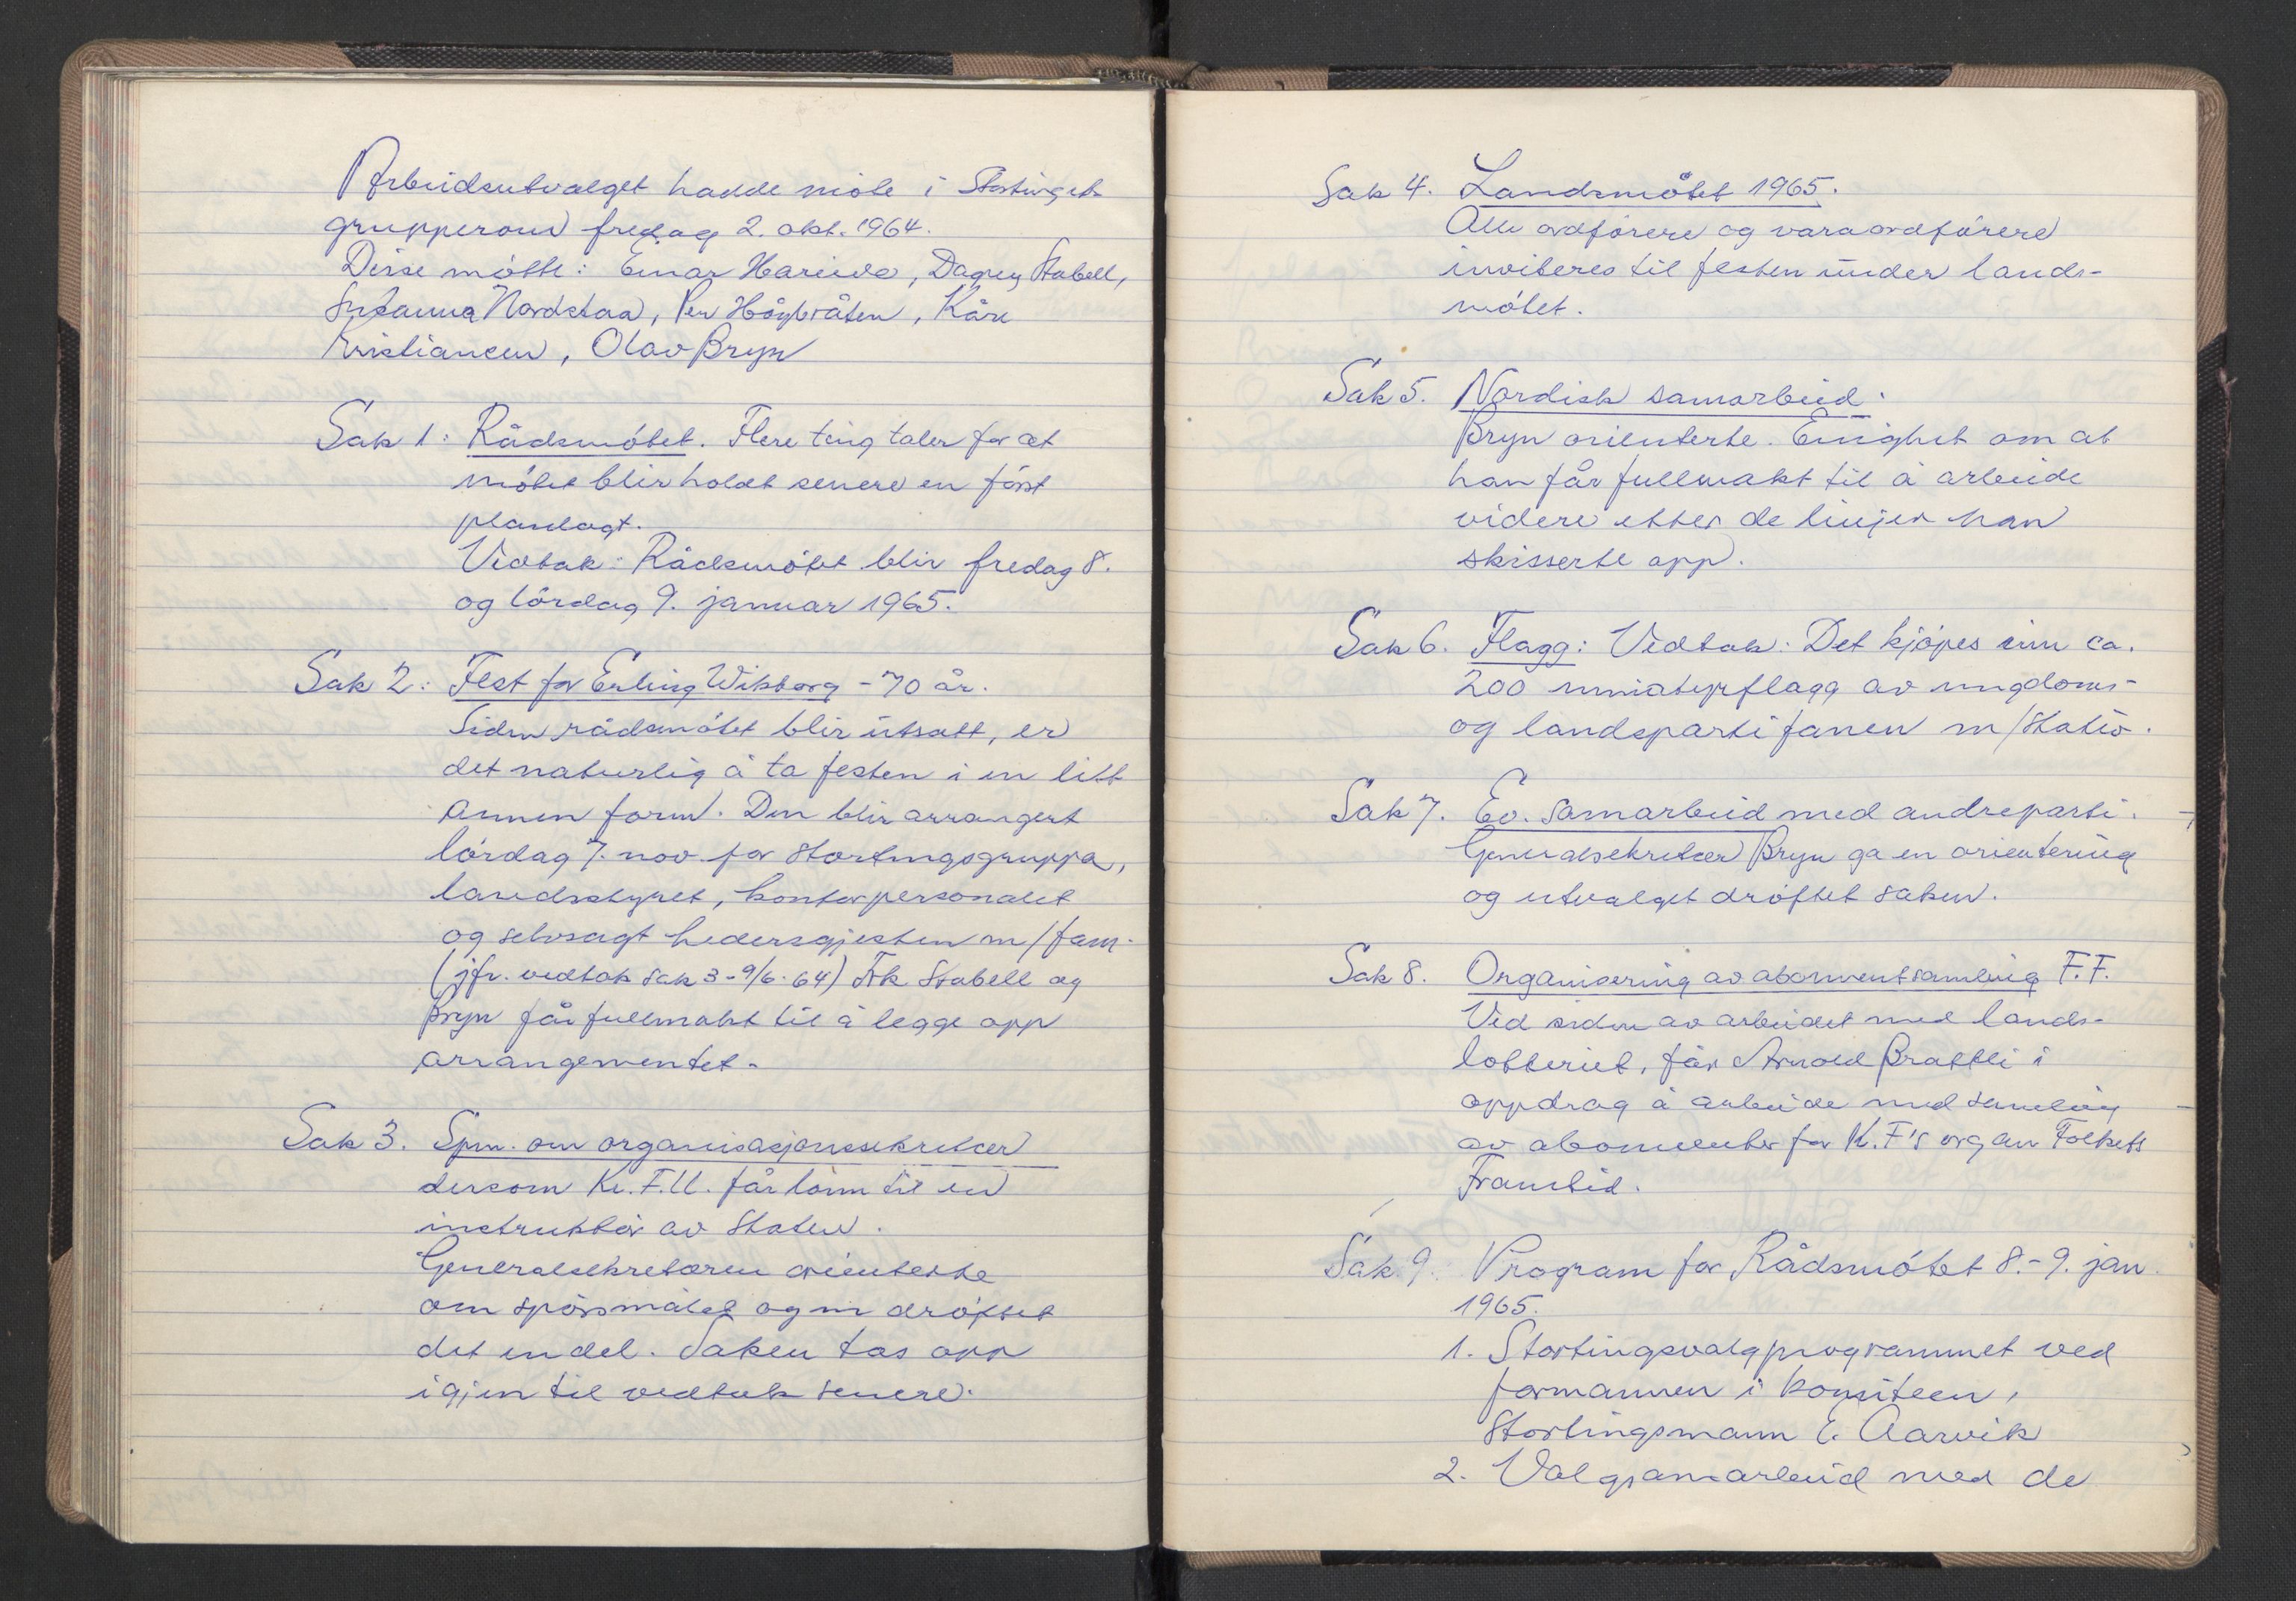 Arbeidsutvalget hadde möte i Stortingets
grupperom fredag 2. okt. 1964.
Disse mötte: Einar Hareide, Dagny Stabell,
Susanna Nordstaa, Per Höybråten, Kåre
Kristiansen, Olav Bryn
Sak 1: Rådsmötet. Flere ting taler for at
mötet blir holdt senere en först
planlagt.
Vedtak: Rådsmötet blir fredag 8.
og lördag 9. januar 1965.
Sak 2: Fest for Erling Wikborg - 70 år.
Siden rådsmötet blir utsatt, er
det naturlig å ta festen i en litt
annen form. Den blir arrangert
lördag 7. nov. for stortingsgruppa,
landsstyret, kontorpersonalet
og selvsagt hedersgjesten m/fam.
(jfr. vedtak sak 3 - 9/6-64) Frk Stabell og
Bryn får fullmakt til å legge opp
arrangementet.
Sak 3. Spm. om organisasjonssekretær
dersom Kr.F.U. får lönn til en
instruktör av Staten.
Generalsekretæren orienterte
om spörsmålet og vi dröftet
det en del. Saken tas opp
igjen til vedtak senere.
Sak 4. Landsmötet 1965.
Alle ordförere og varaordförere
inviteres til festen under lands-
mötet.
Sak 5. Nordisk samarbeid.
Bryn orienterte. Enighet om at
han får fullmakt til å arbeide
videre etter de linjer han
skisserte opp.
Sak 6. Flagg: Vedtak: Det kjöpes inn ca.
200 miniatyrflagg av ungdoms-
og landspartifanen m/stativ.
Sak 7. Ev. samarbeid med andre parti.
Generalsekretær Bryn ga en orientering
og utvalget dröftet saken.
Sak 8. Organisering av abonnentsamling F.F.
Ved siden av arbeidet med lands-
lotteriet, får Arnold Brattli i
oppdrag å arbeide med samling
av abonnenter for Kr.F's organ Folkets
Framtid.
Sak 9. Program for Rådsmötet 8.-9. jan.
1965.
1. Stortingsvalgprogrammet ved
formannen i komiteen,
Stortingsmann E. Aarvik
2. Valgsamarbeid med de